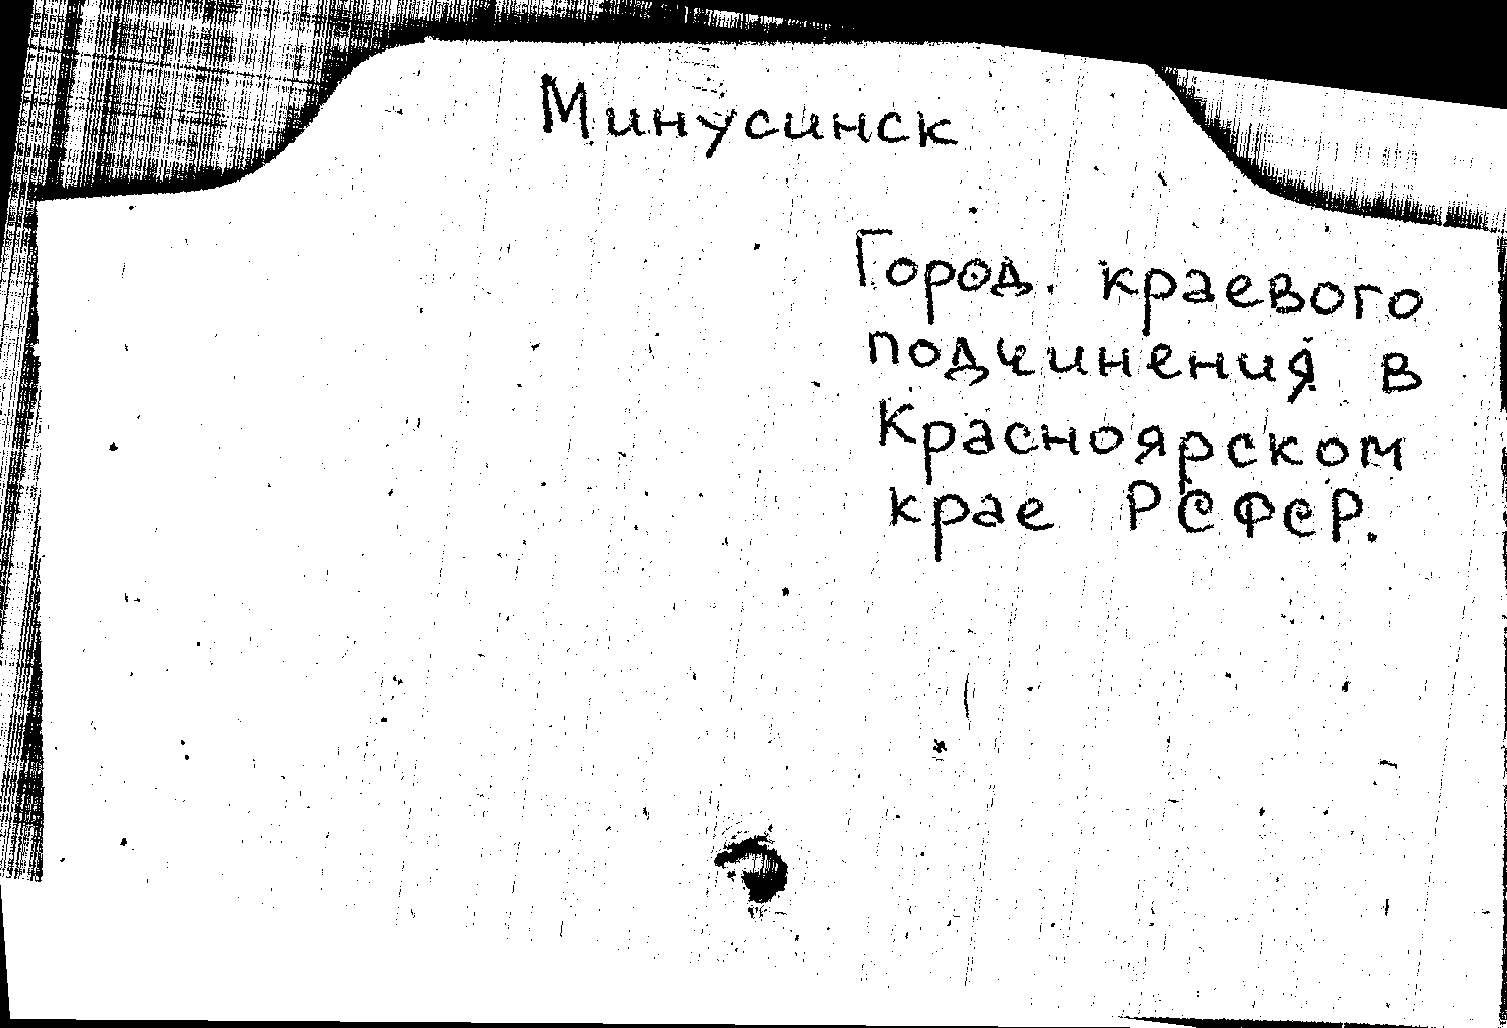 Минусинск
Город. краевого
подчинения в
Красноярском
крае РСФСР.